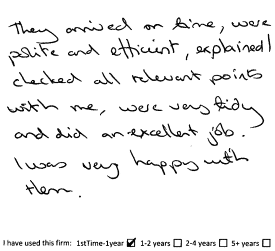 They arrived on time, were
polite and efficient, explained /
checked all relevant points
with me, were very tidy
and did an excellent job.
I was very happy with
them.
I have used this firm: 1stTime-1year ☑ 1-2 years ☐ 2-4 years ☐ 5+ years ☐